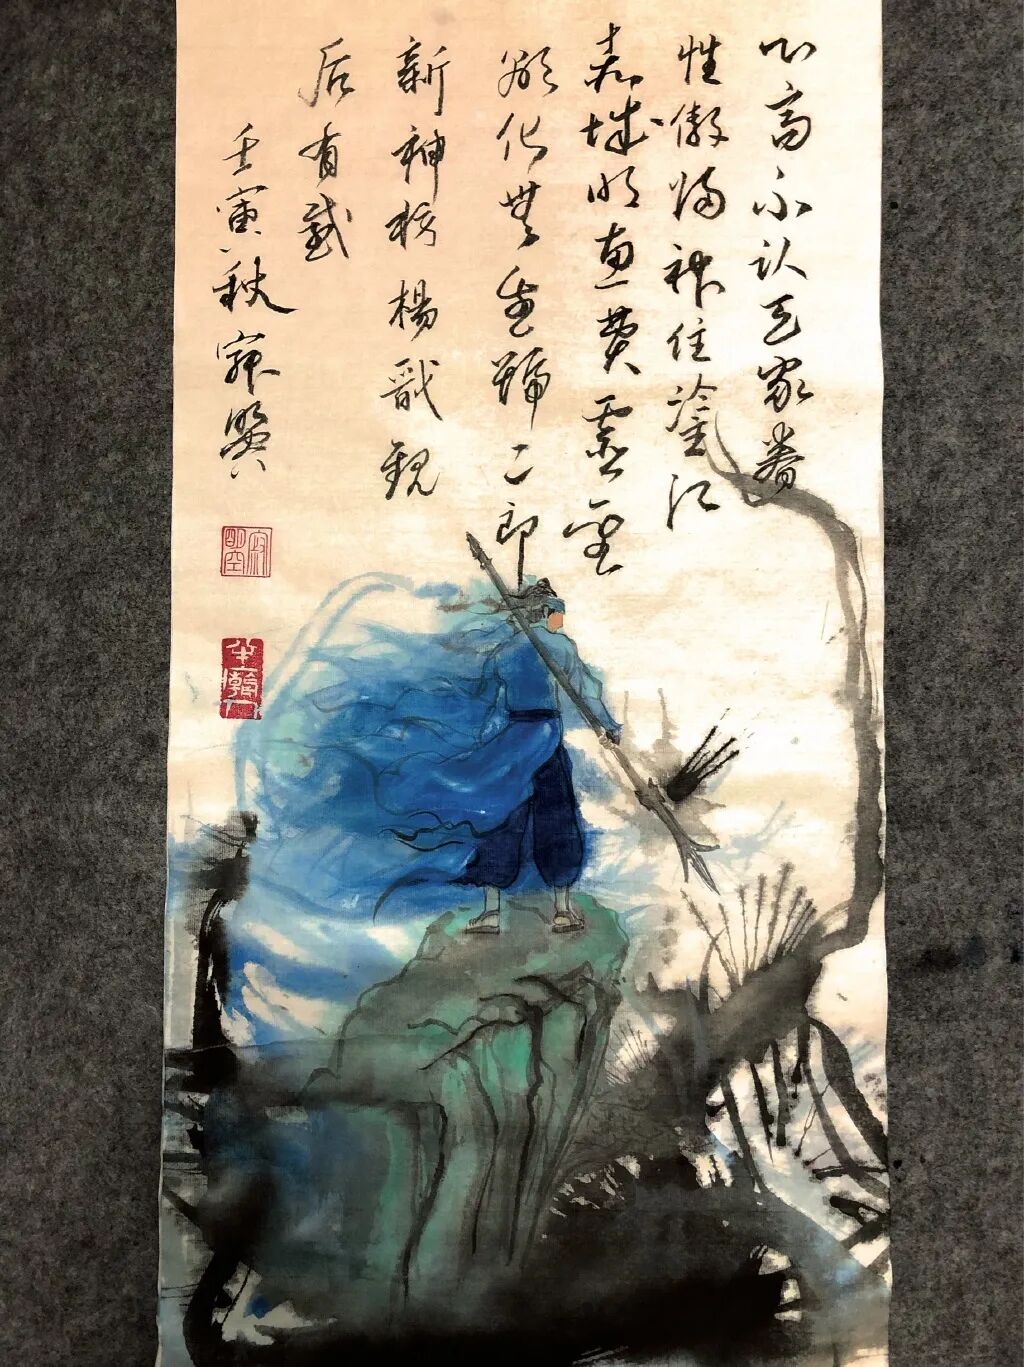 心高不认天家眷
性傲归神住灌江
赤城昭惠英灵圣
顯化無邊號二郎
新神榜楊戬观
后有感
壬寅秋寂